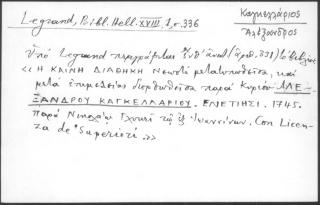 Legrand, Bibl. Hell. XVIII, 1, σ. 336
Καγκελλάριος
Ἀλέξανδρος
Ὑπὸ Legrand περιγράφεται (ἀρθ. 331) τὸ βιβλίον
« Η ΚΑΙΝΗ ΔΙΑΘΗΚΗ Νεωστὶ μετατυπωθεῖσα, καὶ
μετὰ ἐπιμελείας διορθωθεῖσα παρὰ Κυρίου ΑΛΕ-
ΞΑΝΔΡΟΥ ΚΑΓΚΕΛΛΑΡΙΟΥ. ΕΝΕΤΙΗΣΙ. 1745.
παρὰ Νικολάῳ Γλυκεῖ τῷ ἐξ Ἰωαννίνων. Con Licen-
za de' Superiori .»